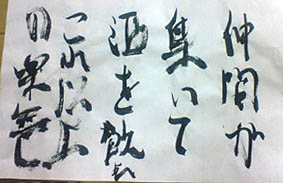 仲間が
集いて
酒を飲
これ以上
の楽